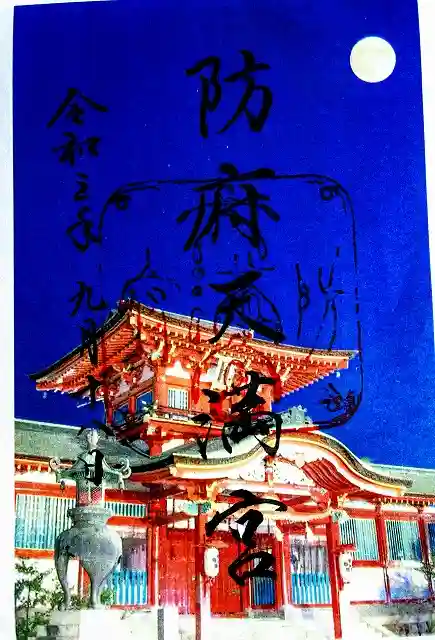 防府天満宮
令和三年九月十八日